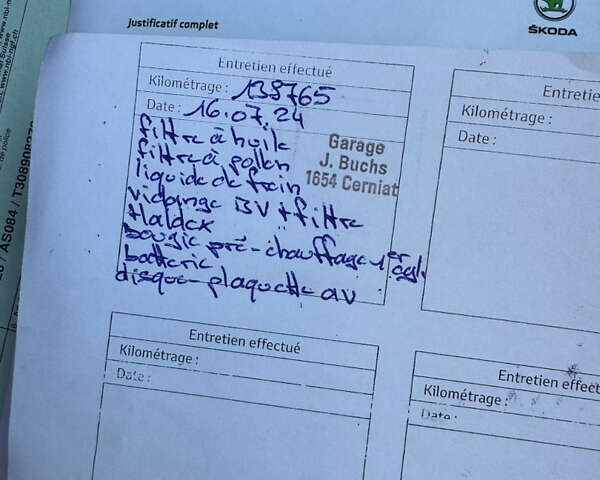 Justificatif complet
ŠKODA
Entretien effectué
Kilométrage : 138765
Date : 16.07.24
filtre à huile
filtre à pollen
liquide de frein
vidange BV + filtre
Haldex
bougie pré-chauffage 1er cyl.
batterie
disque-plaquette av
Garage
J. Buchs
1654 Cerniat
Entretie
Kilométrage :
Date :
Entretien effectué
Kilométrage :
Date :
Entretien effect
Kilométrage :
Date :
AS084 / T308908